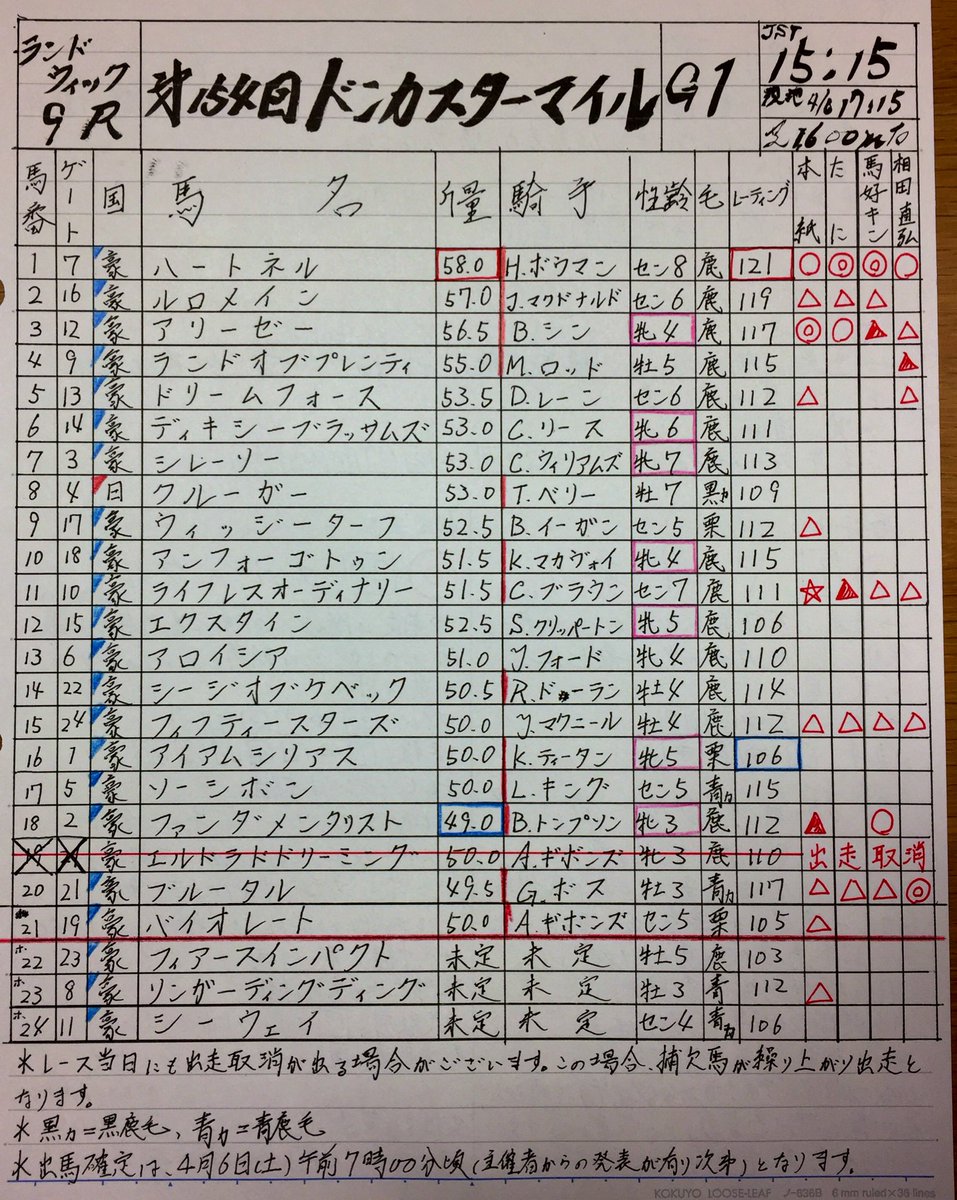 ランド
ウィック
9R
第154回ドンカスターマイル G1
JST
15:15
現地 4/6 17:15
芝1600m右
馬番 ゲート 国 馬名 斤量 騎手 性齢 毛 レーティング 本紙 たに 馬好キン 相田直弘
1 7 豪 ハートネル 58.0 H.ボウマン セン8 鹿 121 ○ ◎ ◎ ○
2 16 豪 ルロメイン 57.0 J.マクドナルド セン6 鹿 119 △ △ △
3 12 豪 アリーゼー 56.5 B.シン 牝4 鹿 117 ◎ ○ ▲ △
4 9 豪 ランドオブプレンティ 55.0 M.ロッド 牡5 鹿 115 ▲
5 13 豪 ドリームフォース 53.5 D.レーン セン6 鹿 112 △ △
6 14 豪 ディキシーブラッサムズ 53.0 C.リース 牝6 鹿 111
7 3 豪 シレーソー 53.0 C.ウィリアムズ 牝7 鹿 113
8 4 日 クルーガー 53.0 T.ベリー 牡7 黒カ 109
9 17 豪 ウィッジーターフ 52.5 B.イーガン セン5 栗 112 △
10 18 豪 アンフォーゴトゥン 51.5 K.マカヴォイ 牝4 鹿 115
11 10 豪 ライフレスオーディナリー 51.5 C.ブラウン セン7 鹿 111 ☆ ▲ △ △
12 15 豪 エクスタイン 52.5 S.クリッパートン 牝5 鹿 106
13 6 豪 アロイシア 51.0 J.フォード 牝4 鹿 110
14 22 豪 シージオブケベック 50.5 R.ドーラン 牡4 鹿 114
15 24 豪 フィフティースターズ 50.0 J.マクニール 牡4 鹿 112 △ △ △ △
16 1 豪 アイアムシリアス 50.0 K.ティータン 牝5 栗 106
17 5 豪 ソーシボン 50.0 L.キング セン5 青カ 115
18 2 豪 ファンダメンタリスト 49.0 B.トンプソン 牝3 鹿 112 ▲ ○
豪 エルドラドドリーミング 50.0 A.ギボンズ 牝3 鹿 110 出走取消
20 21 豪 ブルータル 49.5 G.ボス 牡3 青カ 117 △ △ △ ◎
21 19 豪 バイオレート 50.0 A.ギボンズ セン5 栗 105 △
ホ22 23 豪 フィアースインパクト 未定 未定 牡5 鹿 103
ホ23 8 豪 リンガーディングディング 未定 未定 牡3 青 112 △
ホ24 11 豪 シーウェイ 未定 未定 セン4 青カ 106
※レース当日にも出走取消が出る場合がございます。この場合、補欠馬が繰り上がり出走と
なります。
※黒カ=黒鹿毛、青カ=青鹿毛
※出馬確定は、4月6日(土)午前7時00分頃(主催者からの発表が有り次第)となります。
KOKUYO LOOSE-LEAF ノ-836B 6 mm ruled×36 lines